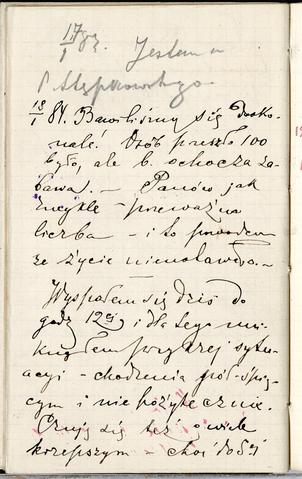 17/I 83. Jestem u
P. Stępkowskiego.
18/I 84. Bawiliśmy się dosko-
nale! Osób przeszło 100
było, ale b. ochocza za-
bawa. – Panów jak
zwykle – przeważna
liczba – i to powodem
że życie
Wyspałem się dziś do
godz 12ej i dla tego
przykrej sytu-
acyi – chodzenia pół-śpią-
cym i nie pożytecznie.
Czuję się też o wiele
krzepszym – choć dość